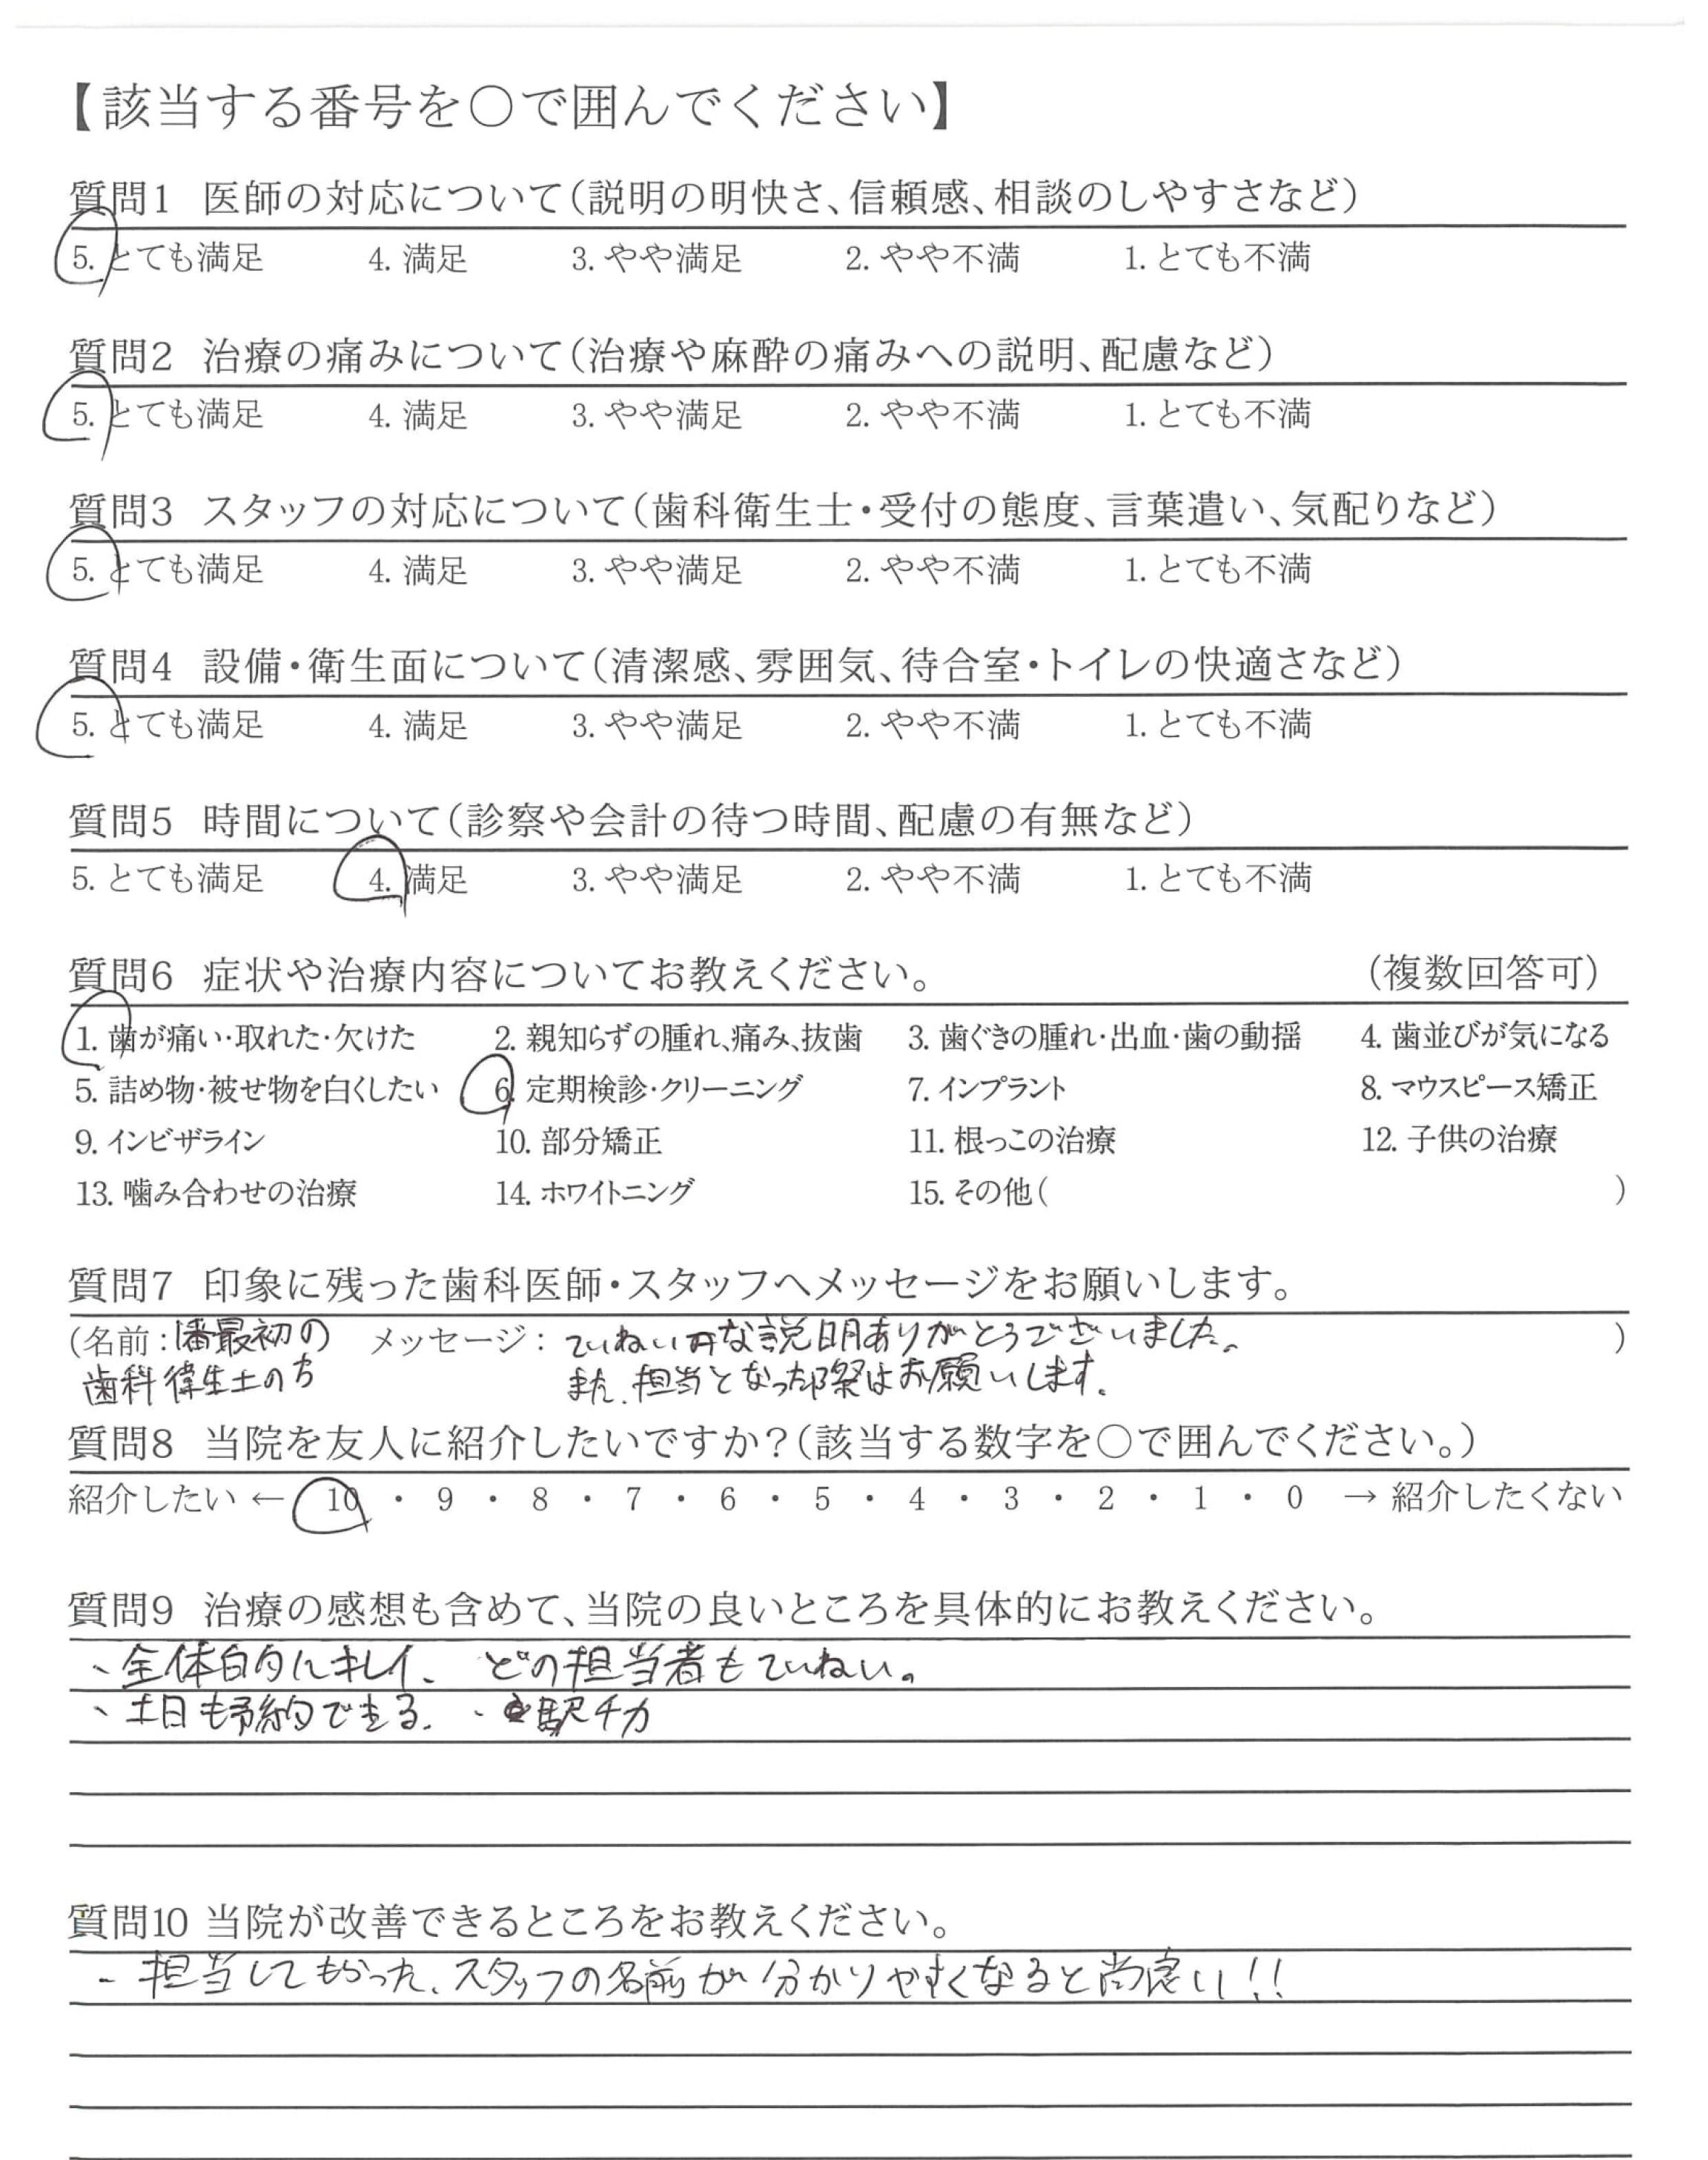 【該当する番号を○で囲んでください】
質問1 医師の対応について(説明の明快さ、信頼感、相談のしやすさなど)
5. とても満足 4. 満足 3. やや満足 2. やや不満 1. とても不満
質問2 治療の痛みについて(治療や麻酔の痛みへの説明、配慮など)
5. とても満足 4. 満足 3. やや満足 2. やや不満 1. とても不満
質問3 スタッフの対応について(歯科衛生士・受付の態度、言葉遣い、気配りなど)
5. とても満足 4. 満足 3. やや満足 2. やや不満 1. とても不満
質問4 設備・衛生面について(清潔感、雰囲気、待合室・トイレの快適さなど)
5. とても満足 4. 満足 3. やや満足 2. やや不満 1. とても不満
質問5 時間について(診察や会計の待つ時間、配慮の有無など)
5. とても満足 4. 満足 3. やや満足 2. やや不満 1. とても不満
質問6 症状や治療内容についてお教えください。 (複数回答可)
1. 歯が痛い・取れた・欠けた 2. 親知らずの腫れ、痛み、抜歯 3. 歯ぐきの腫れ・出血・歯の動揺 4. 歯並びが気になる
5. 詰め物・被せ物を白くしたい 6. 定期検診・クリーニング 7. インプラント 8. マウスピース矯正
9. インビザライン 10. 部分矯正 11. 根っこの治療 12. 子供の治療
13. 噛み合わせの治療 14. ホワイトニング 15. その他( )
質問7 印象に残った歯科医師・スタッフへメッセージをお願いします。
(名前: 1番最初の メッセージ: ていねいな説明ありがとうございました。 )
歯科衛生士の方 また、担当となった際はお願いします。
質問8 当院を友人に紹介したいですか?(該当する数字を○で囲んでください。)
紹介したい ← 10 ・ 9 ・ 8 ・ 7 ・ 6 ・ 5 ・ 4 ・ 3 ・ 2 ・ 1 ・ 0 → 紹介したくない
質問9 治療の感想も含めて、当院の良いところを具体的にお教えください。
、全体的にキレイ、 どの担当者もていねい。
、土日も予約できる. ・駅チカ
質問10 当院が改善できるところをお教えください。
- 担当してもらった、スタッフの名前が分かりやすくなると尚良い!!